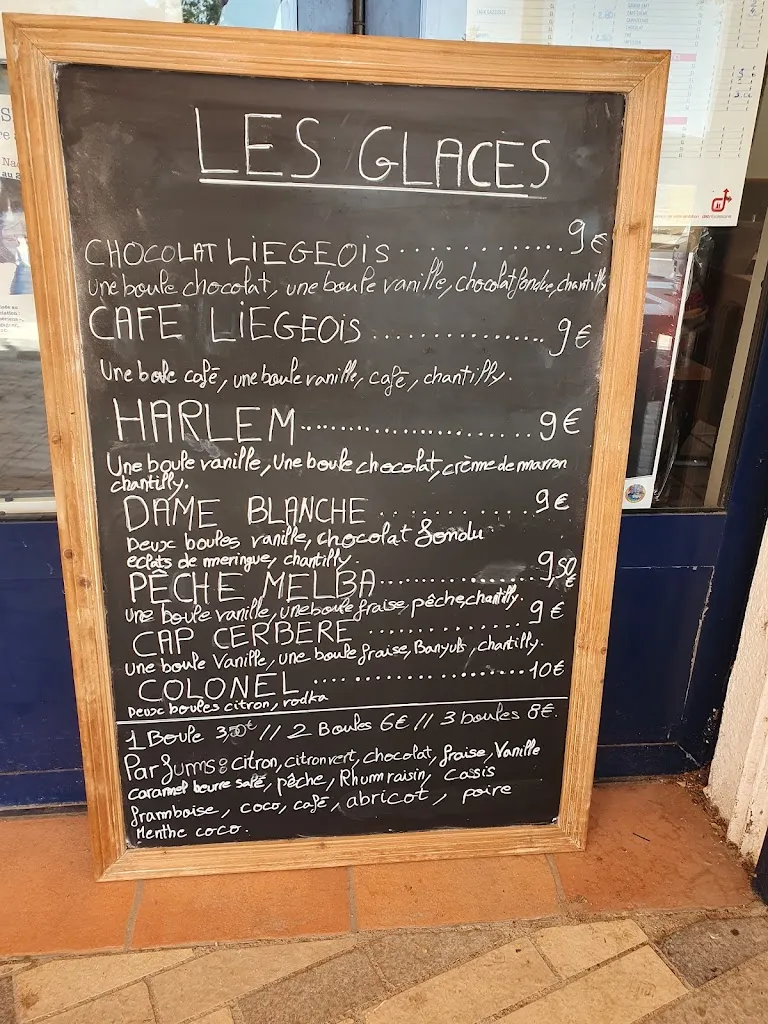 LES GLACES
CHOCOLAT LiEGEOiS .............. 9€
une boule chocolat, une boule vanille, chocolat fondu, chantilly
CAFE LiEGEOiS .................. 9€
Une bole café, une boule vanille, café, chantilly.
HARLEM........................ 9€
Une boule vanille, Une boule chocolat, crème de marron
chantilly.
DAME BLANCHE .............. 9€
Deux boules vanille, chocolat fondu
eclats de meringue, chantilly.
PÊCHE MELBA.................. 9,50€
Une boule vanille, une boule fraise, pêche, chantilly.
CAP CERBERE ................ 9€
Une boule Vanille, une boule fraise, Banyuls, chantilly.
COLONEL .................... 10€
Deux boules citron, vodka
1 Boule 3,50€ // 2 Boules 6€ // 3 boules 8€.
Parfums : citron, citron vert, chocolat, fraise, Vanille
caramel beurre salé, pêche, Rhum raisin, cassis
framboise, coco, café, abricot, poire
Menthe coco.